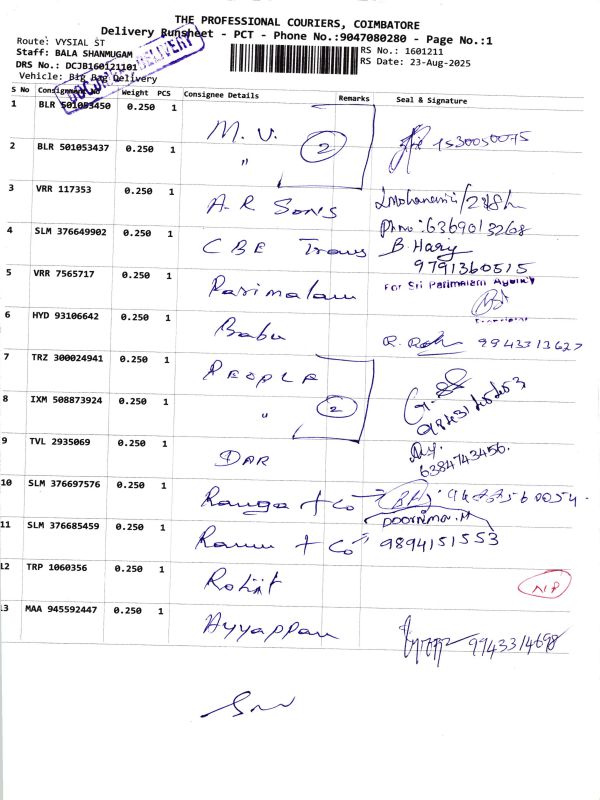 THE PROFESSIONAL COURIERS, COIMBATORE
Delivery Runsheet - PCT - Phone No.:9047080280 - Page No.:1
Route: VYSIAL ST
RS No.: 1601211
Staff: BALA SHANMUGAM
RS Date: 23-Aug-2025
DRS No.: DCJB160121101
Vehicle: Big Bag Delivery
DOCUMENT DELIVERY
S No Consignment No Weight PCS Consignee Details Remarks Seal & Signature
1 BLR 501053450 0.250 1 M. V. 2
2 BLR 501053437 0.250 1 " 7530050075
3 VRR 117353 0.250 1 A-R Sons
Ph no: 6369013268
4 SLM 376649902 0.250 1 CBE Trans B. Hary
9791360515
5 VRR 7565717 0.250 1 Parimalam For Sri Parimalam Agency
6 HYD 93106642 0.250 1 Babu 9943313627
7 TRZ 300024941 0.250 1 PEOPLE 2
8 IXM 508873924 0.250 1 "
9 TVL 2935069 0.250 1 DAR
6384743456.
10 SLM 376697576 0.250 1 Ranga + Co
Poornima.M
11 SLM 376685459 0.250 1 Ramu + Co 9894151553
12 TRP 1060356 0.250 1 Rohit N/P
13 MAA 945592447 0.250 1 Ayyappan 9943314698